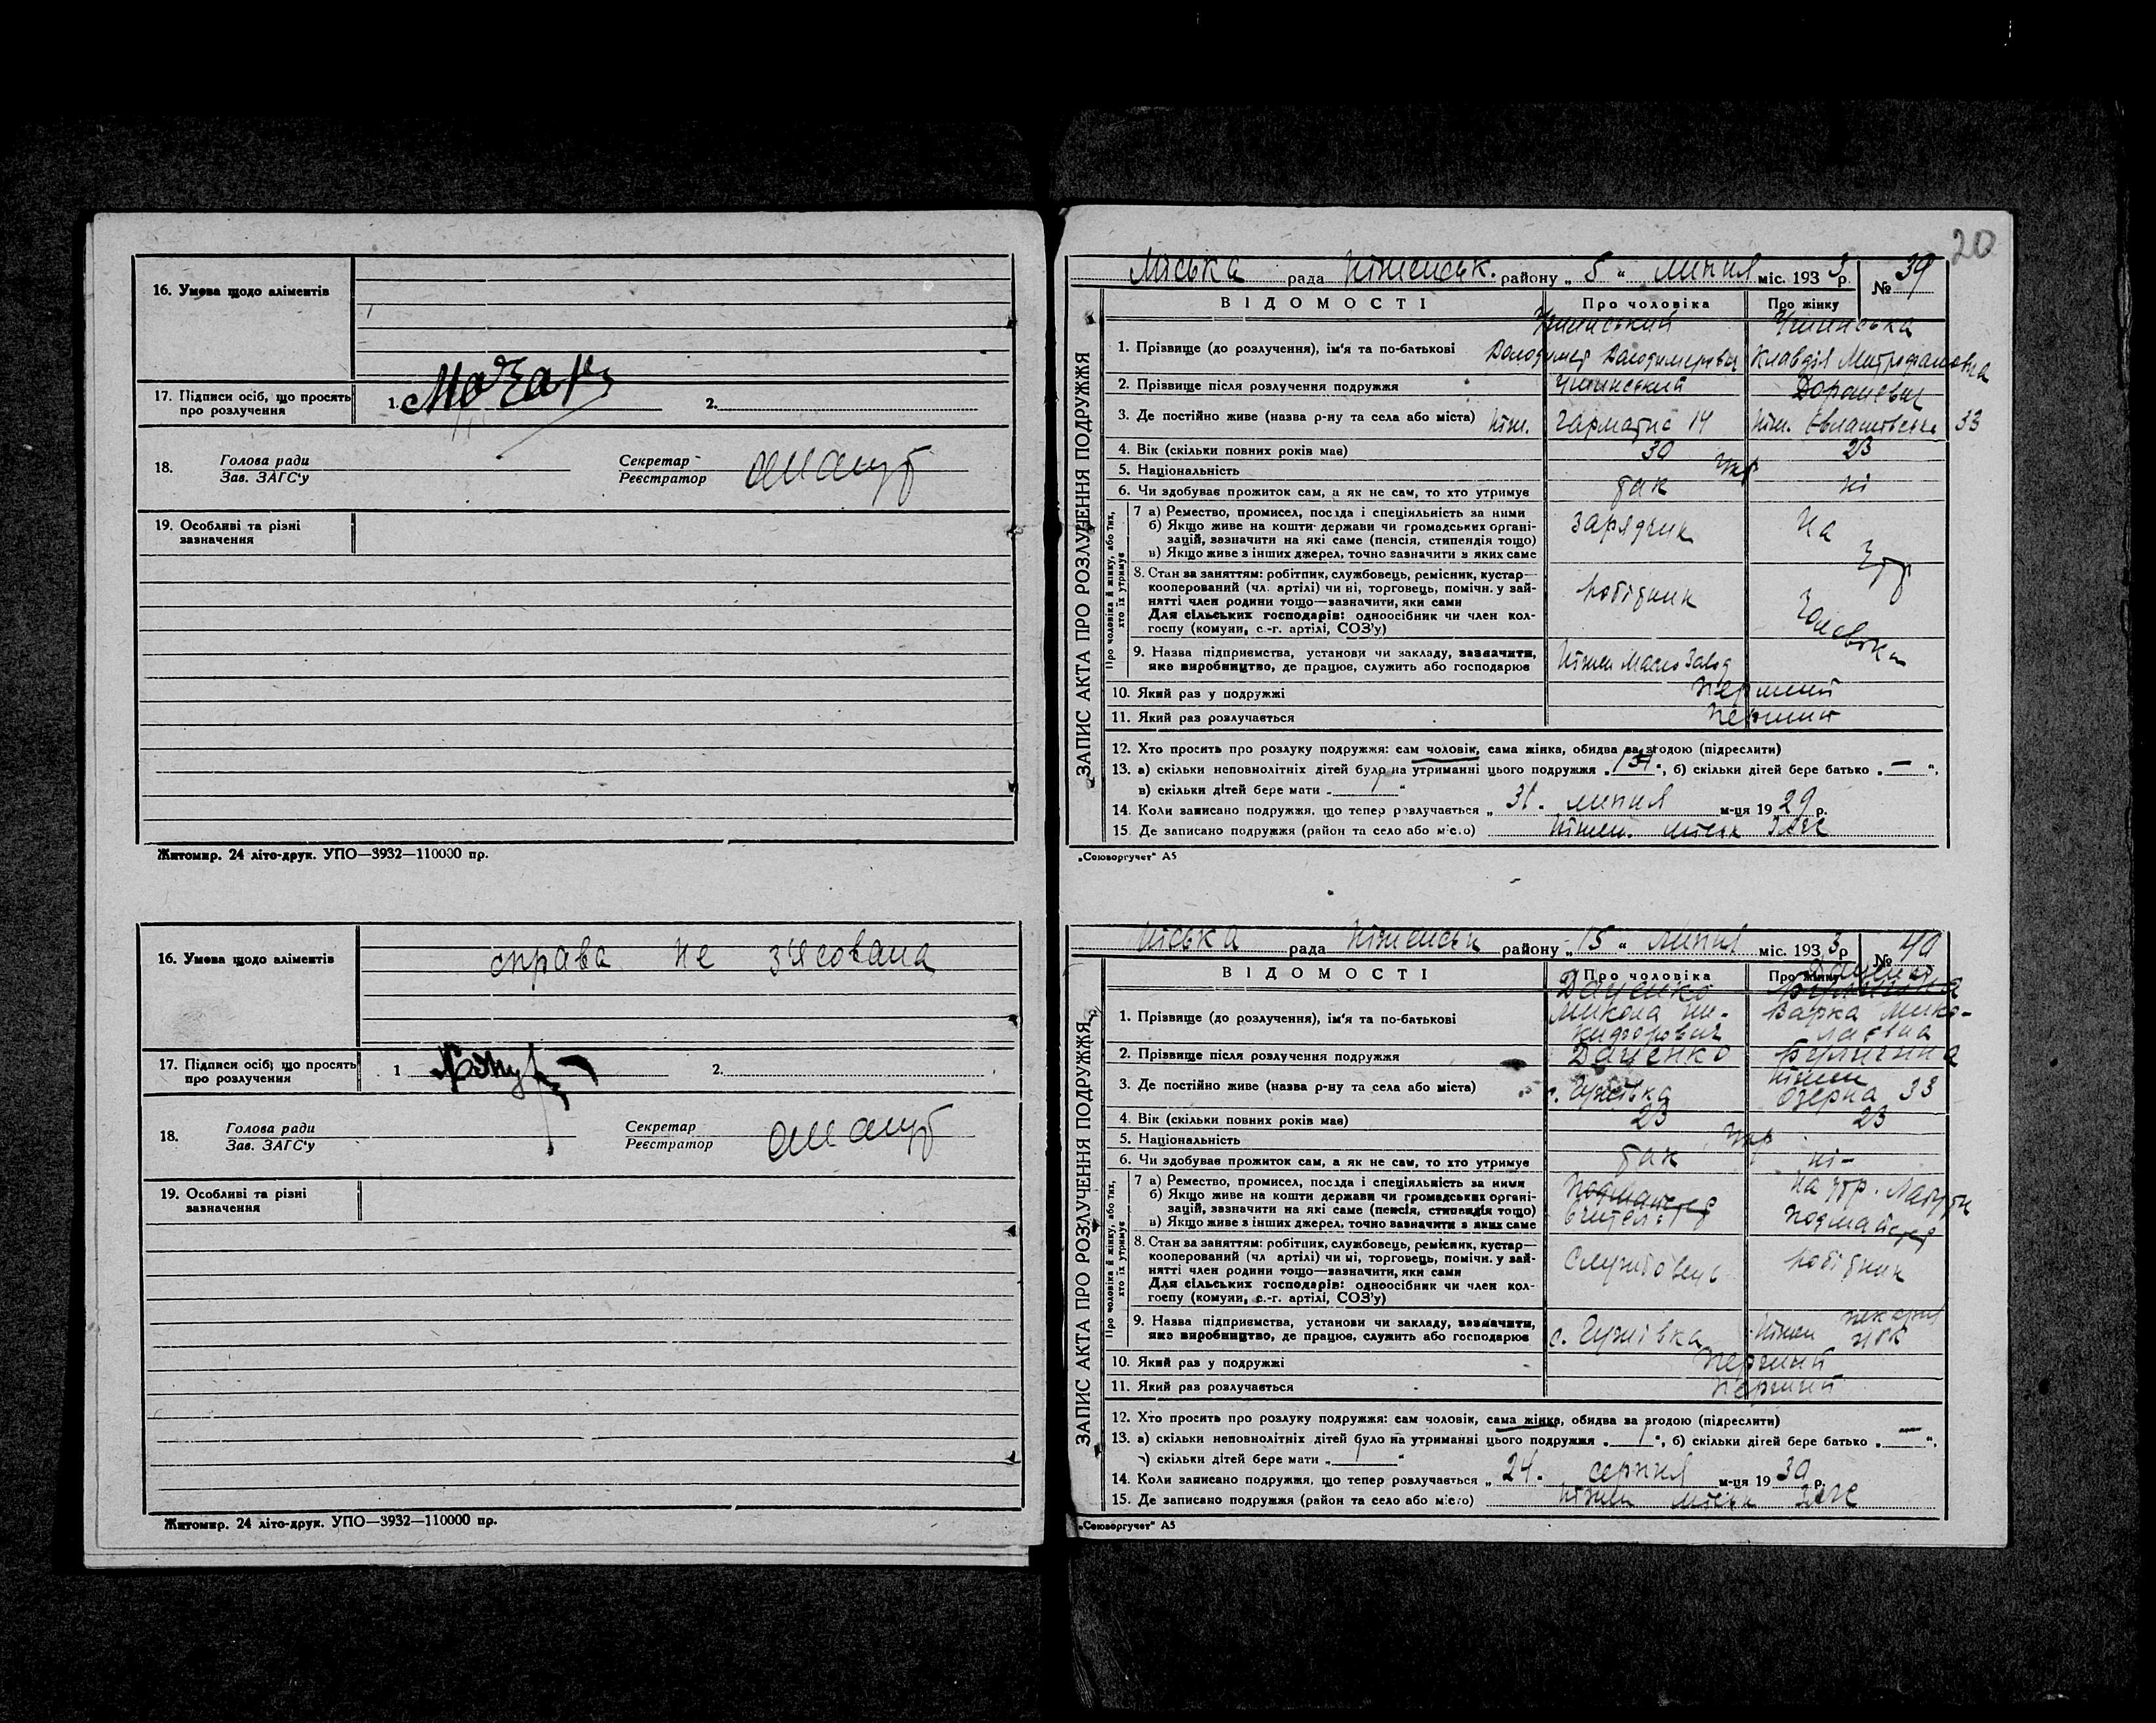 16. Умова щодо аліментів
17. Підписи осіб, що просять
про розлучення
1.
2.
18.
Голова ради
Зав. ЗАГС'у
Секретар
Реєстратор
19. Особливі та різні
зазначення
Житомир. 24 літо-друк. УПО—3932—110000 пр.
16. Умова щодо аліментів
справа не з'ясована
17. Підписи осіб, що просять
про розлучення
1
2.
18.
Голова ради
Зав. ЗАГС'у
Секретар
Реєстратор
19. Особливі та різні
зазначення
Житомир. 24 літо-друк. УПО—3932—110000 пр.
20
ЗАПИС АКТА ПРО РОЗЛУЧЕННЯ ПОДРУЖЖЯ
Міська рада Ніженськ. району „ 5 “ липня міс. 193 3 р. № 39
ВІДОМОСТІ Про чоловіка Про жінку
1. Прізвище (до розлучення), ім'я та по-батькові Володимир Володимирович Клавдія Митрофановна
2. Прізвище після розлучення подружжя
3. Де постійно живе (назва р-ну та села або міста) Ніж. Гарматна 14 Ніж. 33
4. Вік (скільки повних років має) 30 23
5. Національність Укр
6. Чи здобуває прожиток сам, а як не сам, то хто утримує так ні
Про чоловіка й жінку, або тих,
хто їх утримує
7 а) Ремество, промисел, посада і спеціяльність за ними
б) Якщо живе на кошти держави чи громадських органі-
зацій, зазначити на які саме (пенсія, стипендія тощо)
в) Якщо живе з інших джерел, точно зазначити з яких саме
зарядчик На утр
8. Стан за заняттям: робітник, службовець, ремісник, кустар—
кооперований (чл. артілі) чи ні, торговець, помічн. у зай-
нятті член родини тощо—зазначити, яки сами
Для сільських господарів: одноосібник чи член кол-
госпу (комуни, с.-г. артілі, СОЗ'у)
робітник чоловіка
9. Назва підприємства, установи чи закладу, зазначити,
яке виробництво, де працює, служить або господарює
Ніжен Масло Завод
10. Який раз у подружжі перший
11. Який раз розлучається перший
12. Хто просить про розлуку подружжя: сам чоловік, сама жінка, обидва за згодою (підреслити)
13. а) скільки неповнолітніх дітей було на утриманні цього подружжя „ “, б) скільки дітей бере батько „ — “,
в) скільки дітей бере мати „ 1 “
14. Коли записано подружжя, що тепер розлучається „ 31. липня м-ця 19 29 р.
15. Де записано подружжя (район та село або місто) Ніжен. міськ ЗАГС
„Союзоргучет“ А5
ЗАПИС АКТА ПРО РОЗЛУЧЕННЯ ПОДРУЖЖЯ
Міська рада Ніженськ району „ 15 “ липня міс. 193 3 р № 40
ВІДОМОСТІ Про чоловіка Про жінку
Даценко
1. Прізвище (до розлучення), ім'я та по-батькові Микола Ни- Варка Мико-
кифорович лаєвна
2. Прізвище після розлучення подружжя Даценко
3. Де постійно живе (назва р-ну та села або міста) с. Гужівка Ніжен
Озерна 33
4. Вік (скільки повних років має) 23 23
5. Національність Укр
6. Чи здобуває прожиток сам, а як не сам, то хто утримує так ні—
Про чоловіка й жінку, або тих,
хто їх утримує
7 а) Ремество, промисел, посада і спеціяльність за ними
б) Якщо живе на кошти держави чи громадських органі-
зацій, зазначити на які саме (пенсія, стипендія тощо)
в) Якщо живе з інших джерел, точно зазначити з яких саме
подмайстер на утр.
вчитель подмайстер
8. Стан за заняттям: робітник, службовець, ремісник, кустар—
кооперований (чл артілі) чи ні, торговець, помічн. у зай-
нятті член родини тощо—зазначити, яки сами
Для сільських господарів: одноосібник чи член кол-
госпу (комуни, с.-г. артілі, СОЗ'у)
Службовець робітник
9. Назва підприємства, установи чи закладу, зазначити,
яке виробництво, де працює, служить або господарює
с. Гужівка Ніжен пекарня
10. Який раз у подружжі перший
11. Який раз розлучається перший
12. Хто просить про розлуку подружжя: сам чоловік, сама жінка, обидва за згодою (підреслити)
13. а) скільки неповнолітніх дітей було на утриманні цього подружжя „ 1 “, б) скільки дітей бере батько „ — “,
в) скільки дітей бере мати „ 1 “
14. Коли записано подружжя, що тепер розлучається „ 24. серпня м-ця 19 30 р.
15. Де записано подружжя (район та село або місто) Ніжен міськ ЗАГС
„Союзоргучет“ А5